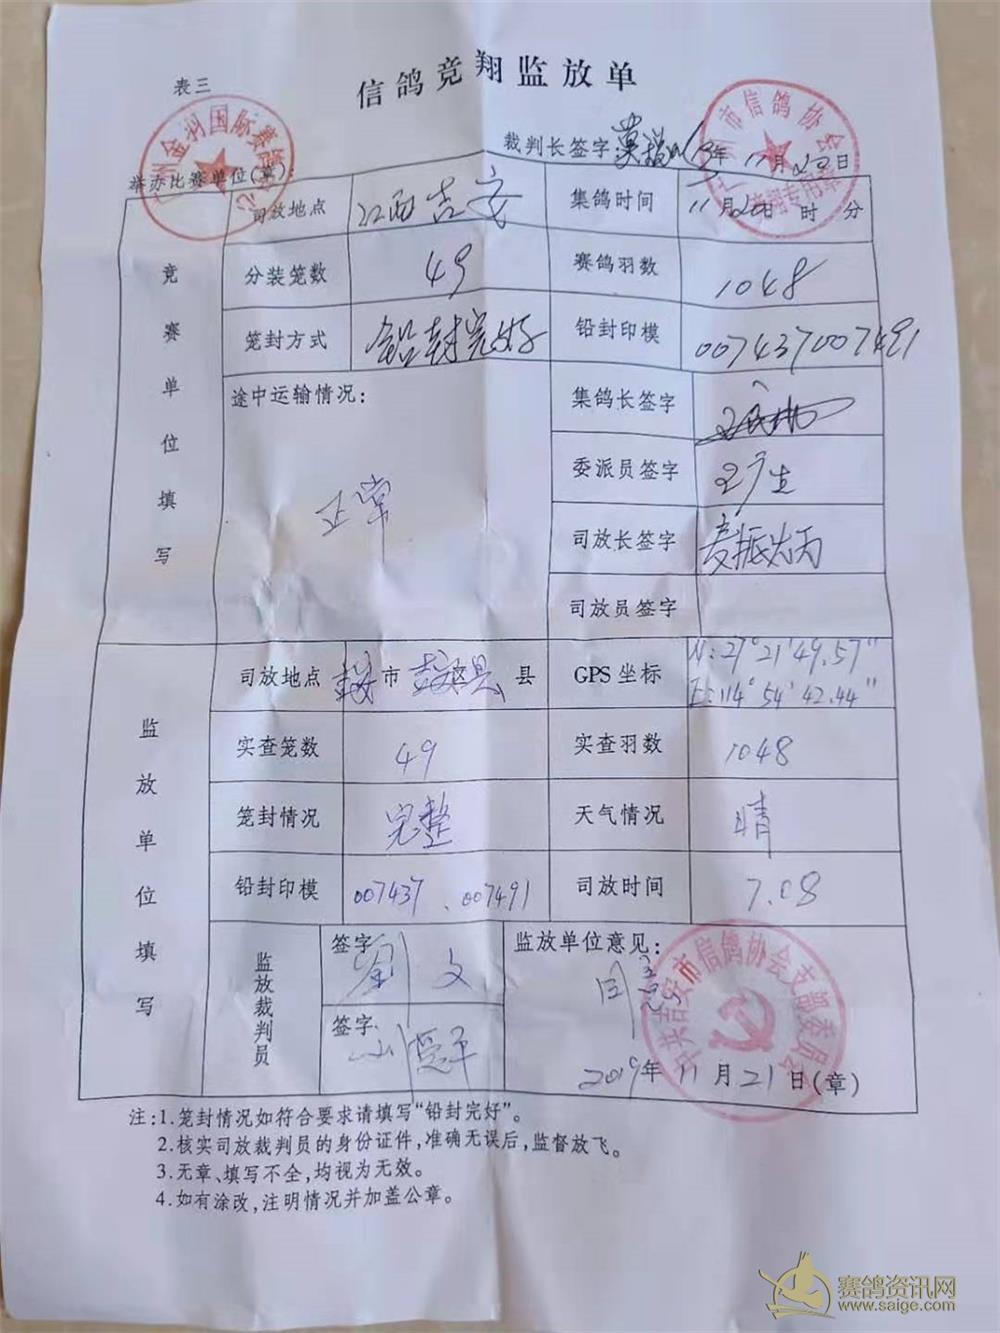 表三
信鸽竞翔监放单
金州国际赛鸽
市信鸽协会
竞翔专用章
裁判长签字 19年11月20日
举办比赛单位(章)
竞赛单位填写
司放地点 江西吉安 集鸽时间 11月20日 时 分
分装笼数 49 赛鸽羽数 1048
笼封方式 铅封完好 铅封印模 007437 007491
途中运输情况: 正常
集鸽长签字
委派员签字
司放长签字
司放员签字
监放单位填写
司放地点 市 县 GPS坐标 N:27°21'49.57"
E:114°54'42.44"
实查笼数 49 实查羽数 1048
笼封情况 完整 天气情况 晴
铅封印模 007437、007491 司放时间 7.08
监放裁判员
签字 刘文
签字
监放单位意见: 同意
中共吉安市信鸽协会支部委员会
2019年11月21日(章)
注:1.笼封情况如符合要求请填写“铅封完好”。
2.核实司放裁判员的身份证件,准确无误后,监督放飞。
3.无章、填写不全,均视为无效。
4.如有涂改,注明情况并加盖公章。
赛鸽资讯网
www.saige.com